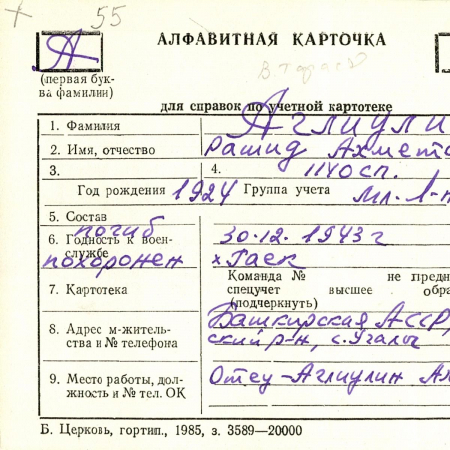 55
А
АЛФАВИТНАЯ КАРТОЧКА
(первая бук-
ва фамилии)
для справок по учетной картотеке
1. Фамилия Аглиули
2. Имя, отчество Рашид Ахмето
3. 4. 1140 сп.
Год рождения 1924 Группа учета мл. л-
5. Состав
погиб
6. Годность к воен-
службе
30.12.1943 г
похоронен х. Гаек
Команда № не предн
спецучет высшее обра
(подчеркнуть)
7. Картотека
8. Адрес м-житель-
ства и № телефона
Башкирская АССР,
ский р-н, с.
9. Место работы, дол-
жность и № тел. ОК
Отец - Аглиулин
Б. Церковь, гортип., 1985, з. 3589—20000